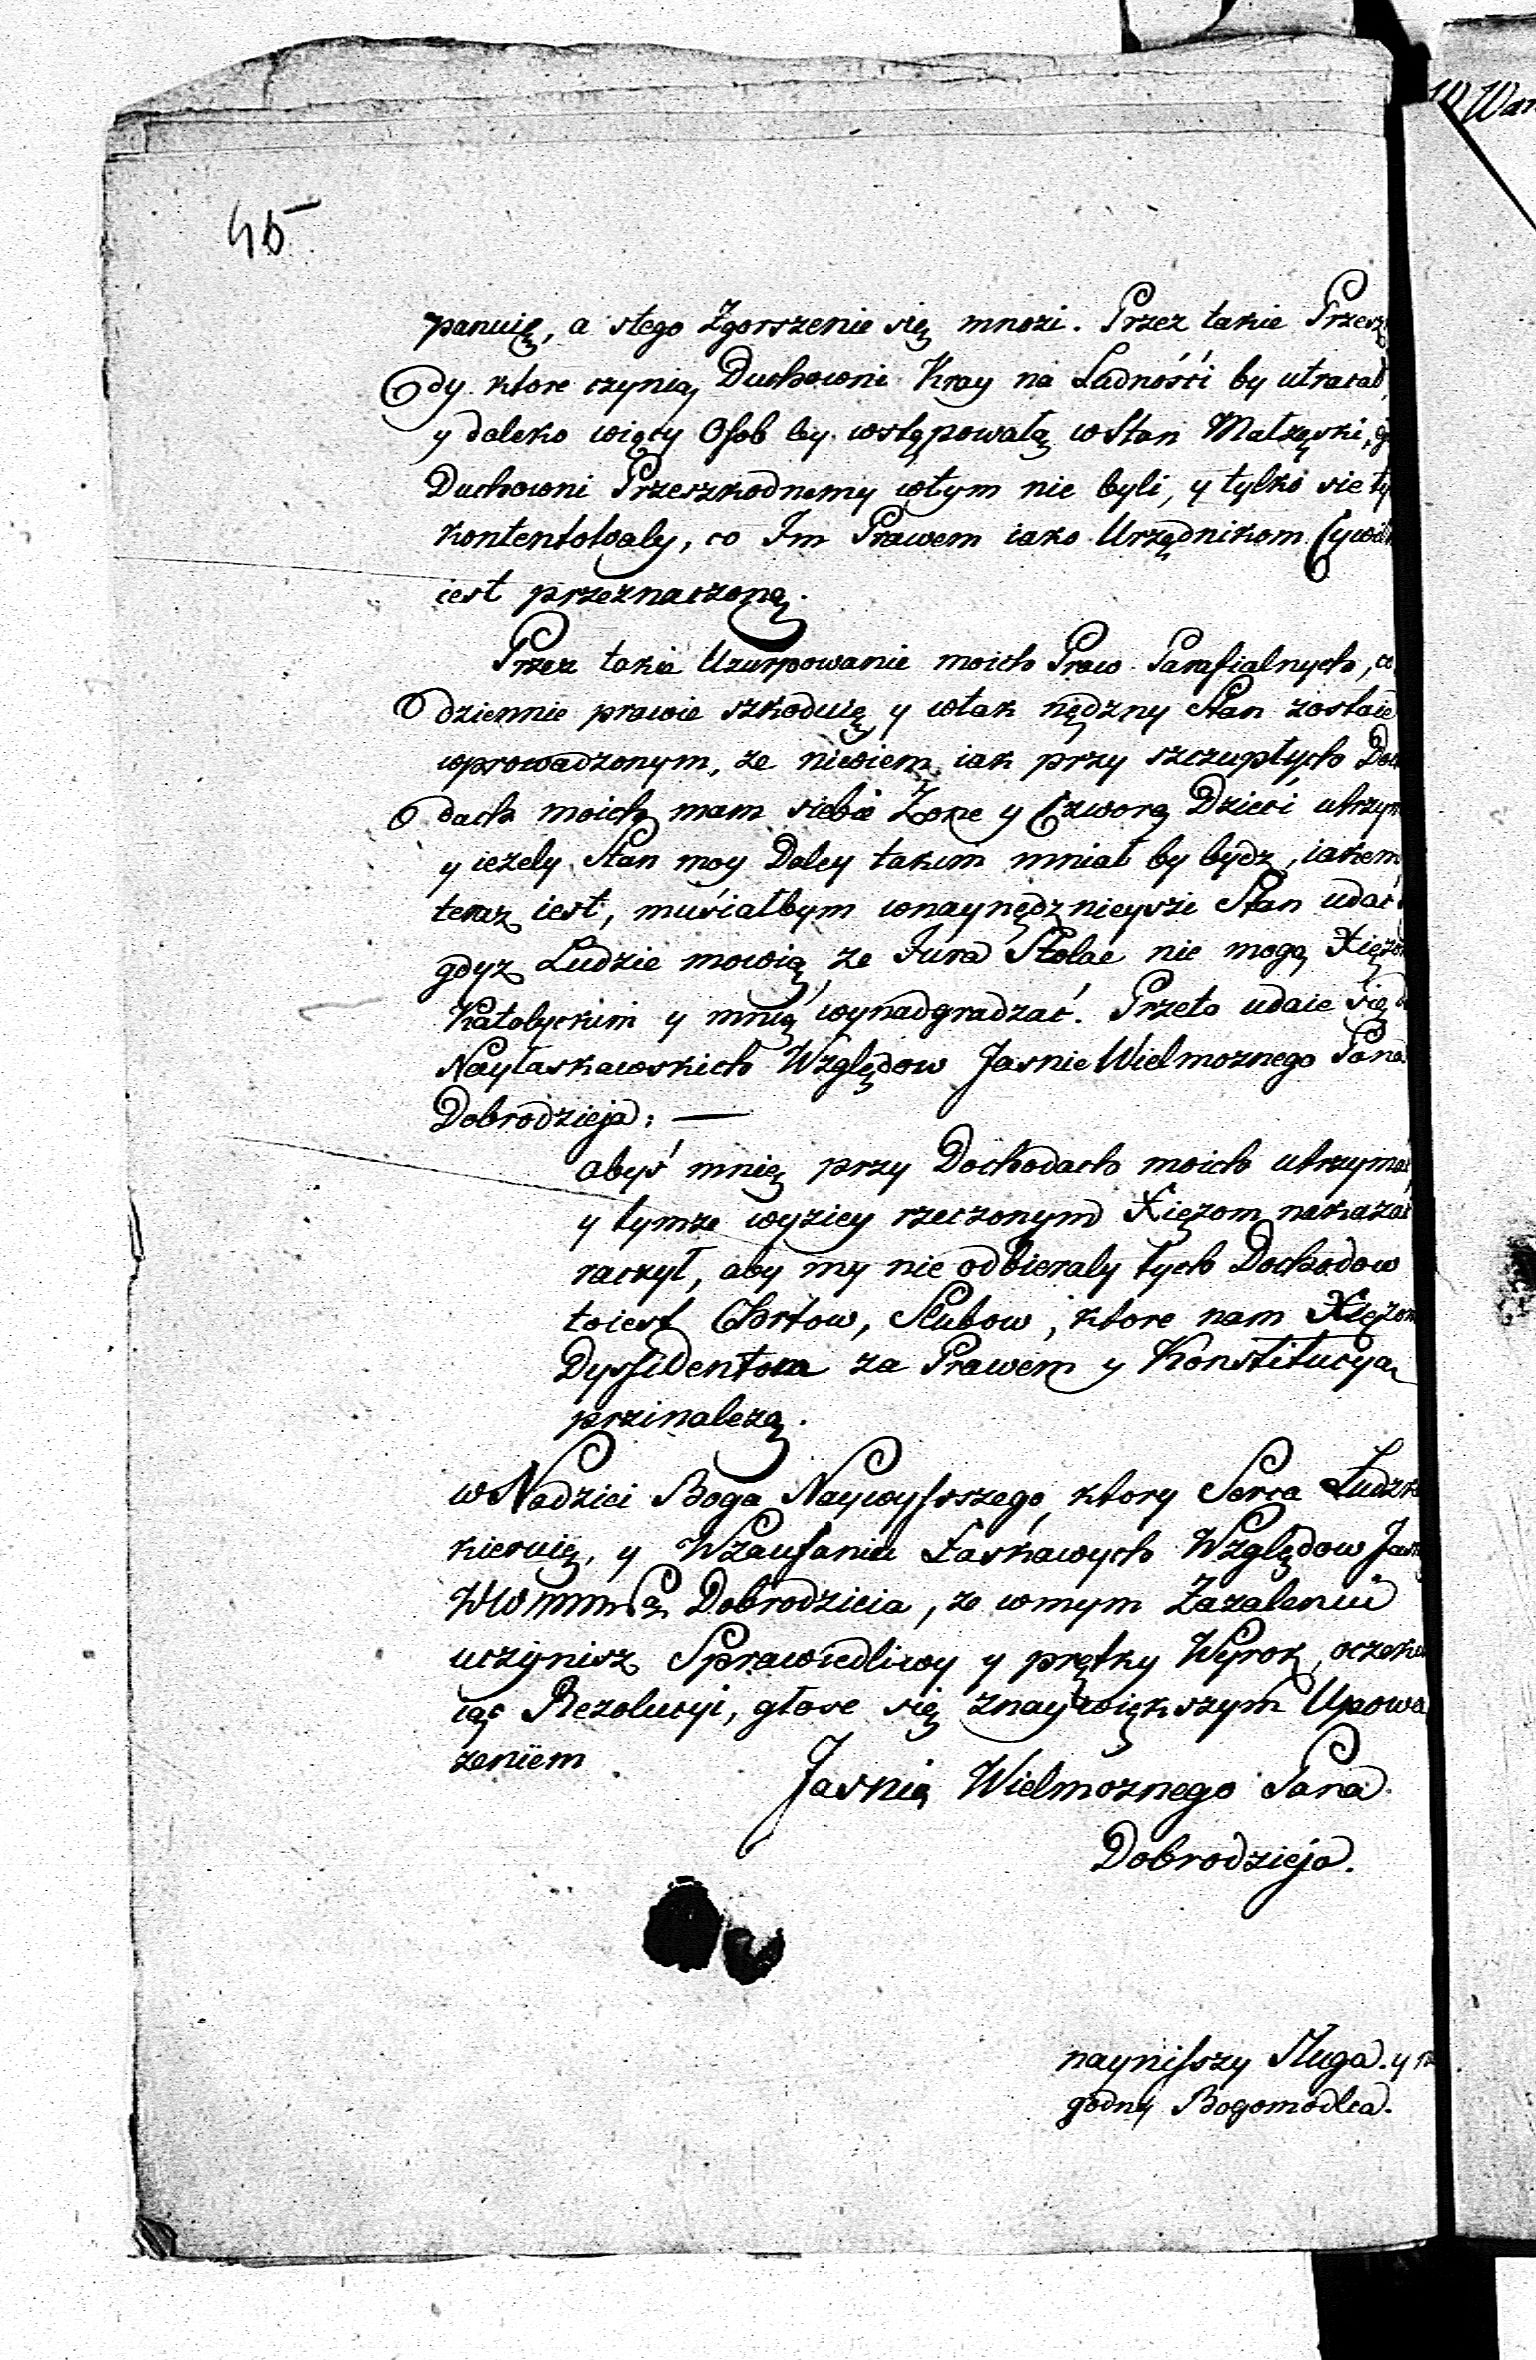 45
panuię, a stego Zgorszenie się mnozi. Przez takie Przesz
dy ktore czynią Duchowni Kray na Ludnośći by utracał,
y daleko więcy Osob by wstępowałą wStan Małzęski,
Duchowni Przeszkodnemy wtym nie byli, y tylko sie ty
kontentowaly, co Im Prawem iako Urzędnikom Cywil
iest przeznaczoną.
Przez takie Uzurpowanie moich Praw Parafialnych, co
dziennie prawie szkoduię y wtak nędzny Stan zostaie
wprowadzonym, ze niewiem iak przy szczupłych Doc
dach moich mam siebie Zone y Czworą Dzieci utrzym
y iezely Stan moy Daley takim mniał by bydz, iakem
teraz iest, muśiałbym wnaynędznieysze Stan udać
gdyz Ludzie mowią ze Jura Stolae nie mogą Xięzo
Katolyckim y mnią wynadgradzać. Przeto udaie się d
Nayłaskawskich Względow Jasnie Wielmoznego Pana
Dobrodzieja: —
abyś mnię przy Dochodach moich utrzymać
y tymze wyziey rzeczonym Xięzom nakazać
raczył, aby my nie odbieraly tych Dochodow
toiest Chrtow, Slubow, ktore nam Xięzom
Dyssidentom za Prawem y Konstitucya
przinalezą.
wNadziei Boga Naywysszego, ktory Serca Ludzk
kieruię, y Wzaufaniu Łaskawych Względow Jasn
Dobrodzicia, ze wmym Zazaleniu
uczynisz Sprawiedliwy y prętky Wyrok, oczeku
iąc Rezolucyi, głose się znaywiększym Upowa
zeniem
Jasnią Wielmoznego Pana
Dobrodzieja.
naynisszy Sługa y n
godny Bogomodlca.